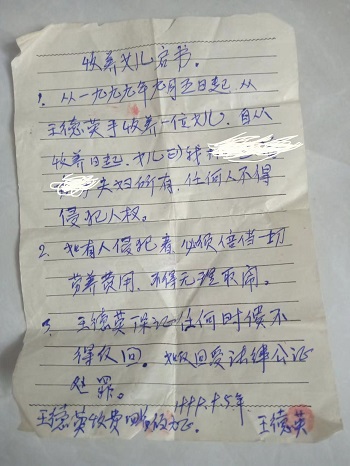 收养女儿启书。
1. 从一九九九年九月五日起, 从
王德英手收养一位女儿, 自从
收养日起, 女儿已
夫妇所有, 任何人不得
侵犯人权。
2. 如有人侵犯者必须倍偿一切
营养费用, 不得无理取闹。
3. 王德英保证任何时候不
得反回。如反回受法律公证
处罪。
王德英收费 为证。
王德英